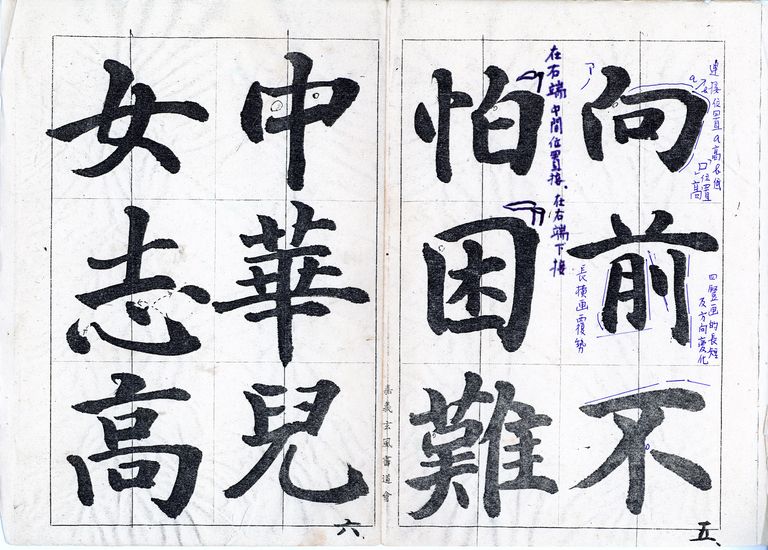 向前不
怕困難
中華兒
女志高
連接位置a高右低
「口」位置高
四豎画的長短
及方向變化
在右端中間位置接、在右端下接
長橫画覆勢
嘉義玄風書道會
五
六